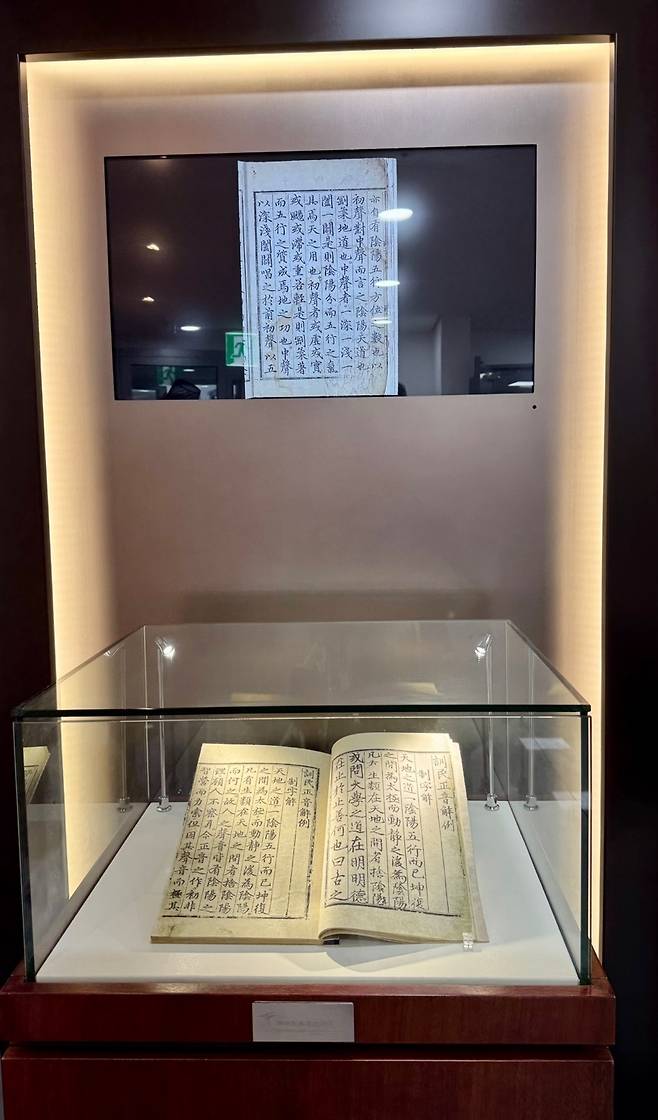 亦自有陰陽五行方位之數也以
初聲對中聲而言之陰陽天道也
剛柔地道也中聲者一深一淺一
闔一闢是則陰陽分而五行之氣
具焉天之用也初聲者或虛或實
或颺或滯或重若輕是則剛柔著
而五行之質成焉地之功也中聲
以深淺闔闢唱之於前初聲以五
訓民正音解例
制字解
天地之道一陰陽五行而已坤復
之間為太極而動靜之後為陰陽
凡 生類在天地之間者捨陰陽
或問大學之道在明明德
在止 善何也曰古之
訓民正音解例
制字解
天地之道一陰陽五行而已坤復
之間為太極而動靜之後為陰陽
凡有生類在天地之間者捨陰陽
而何之故人之聲音皆有陰陽之
理顧人不察耳今正音之作初非
智營而力索但因其聲音而極其